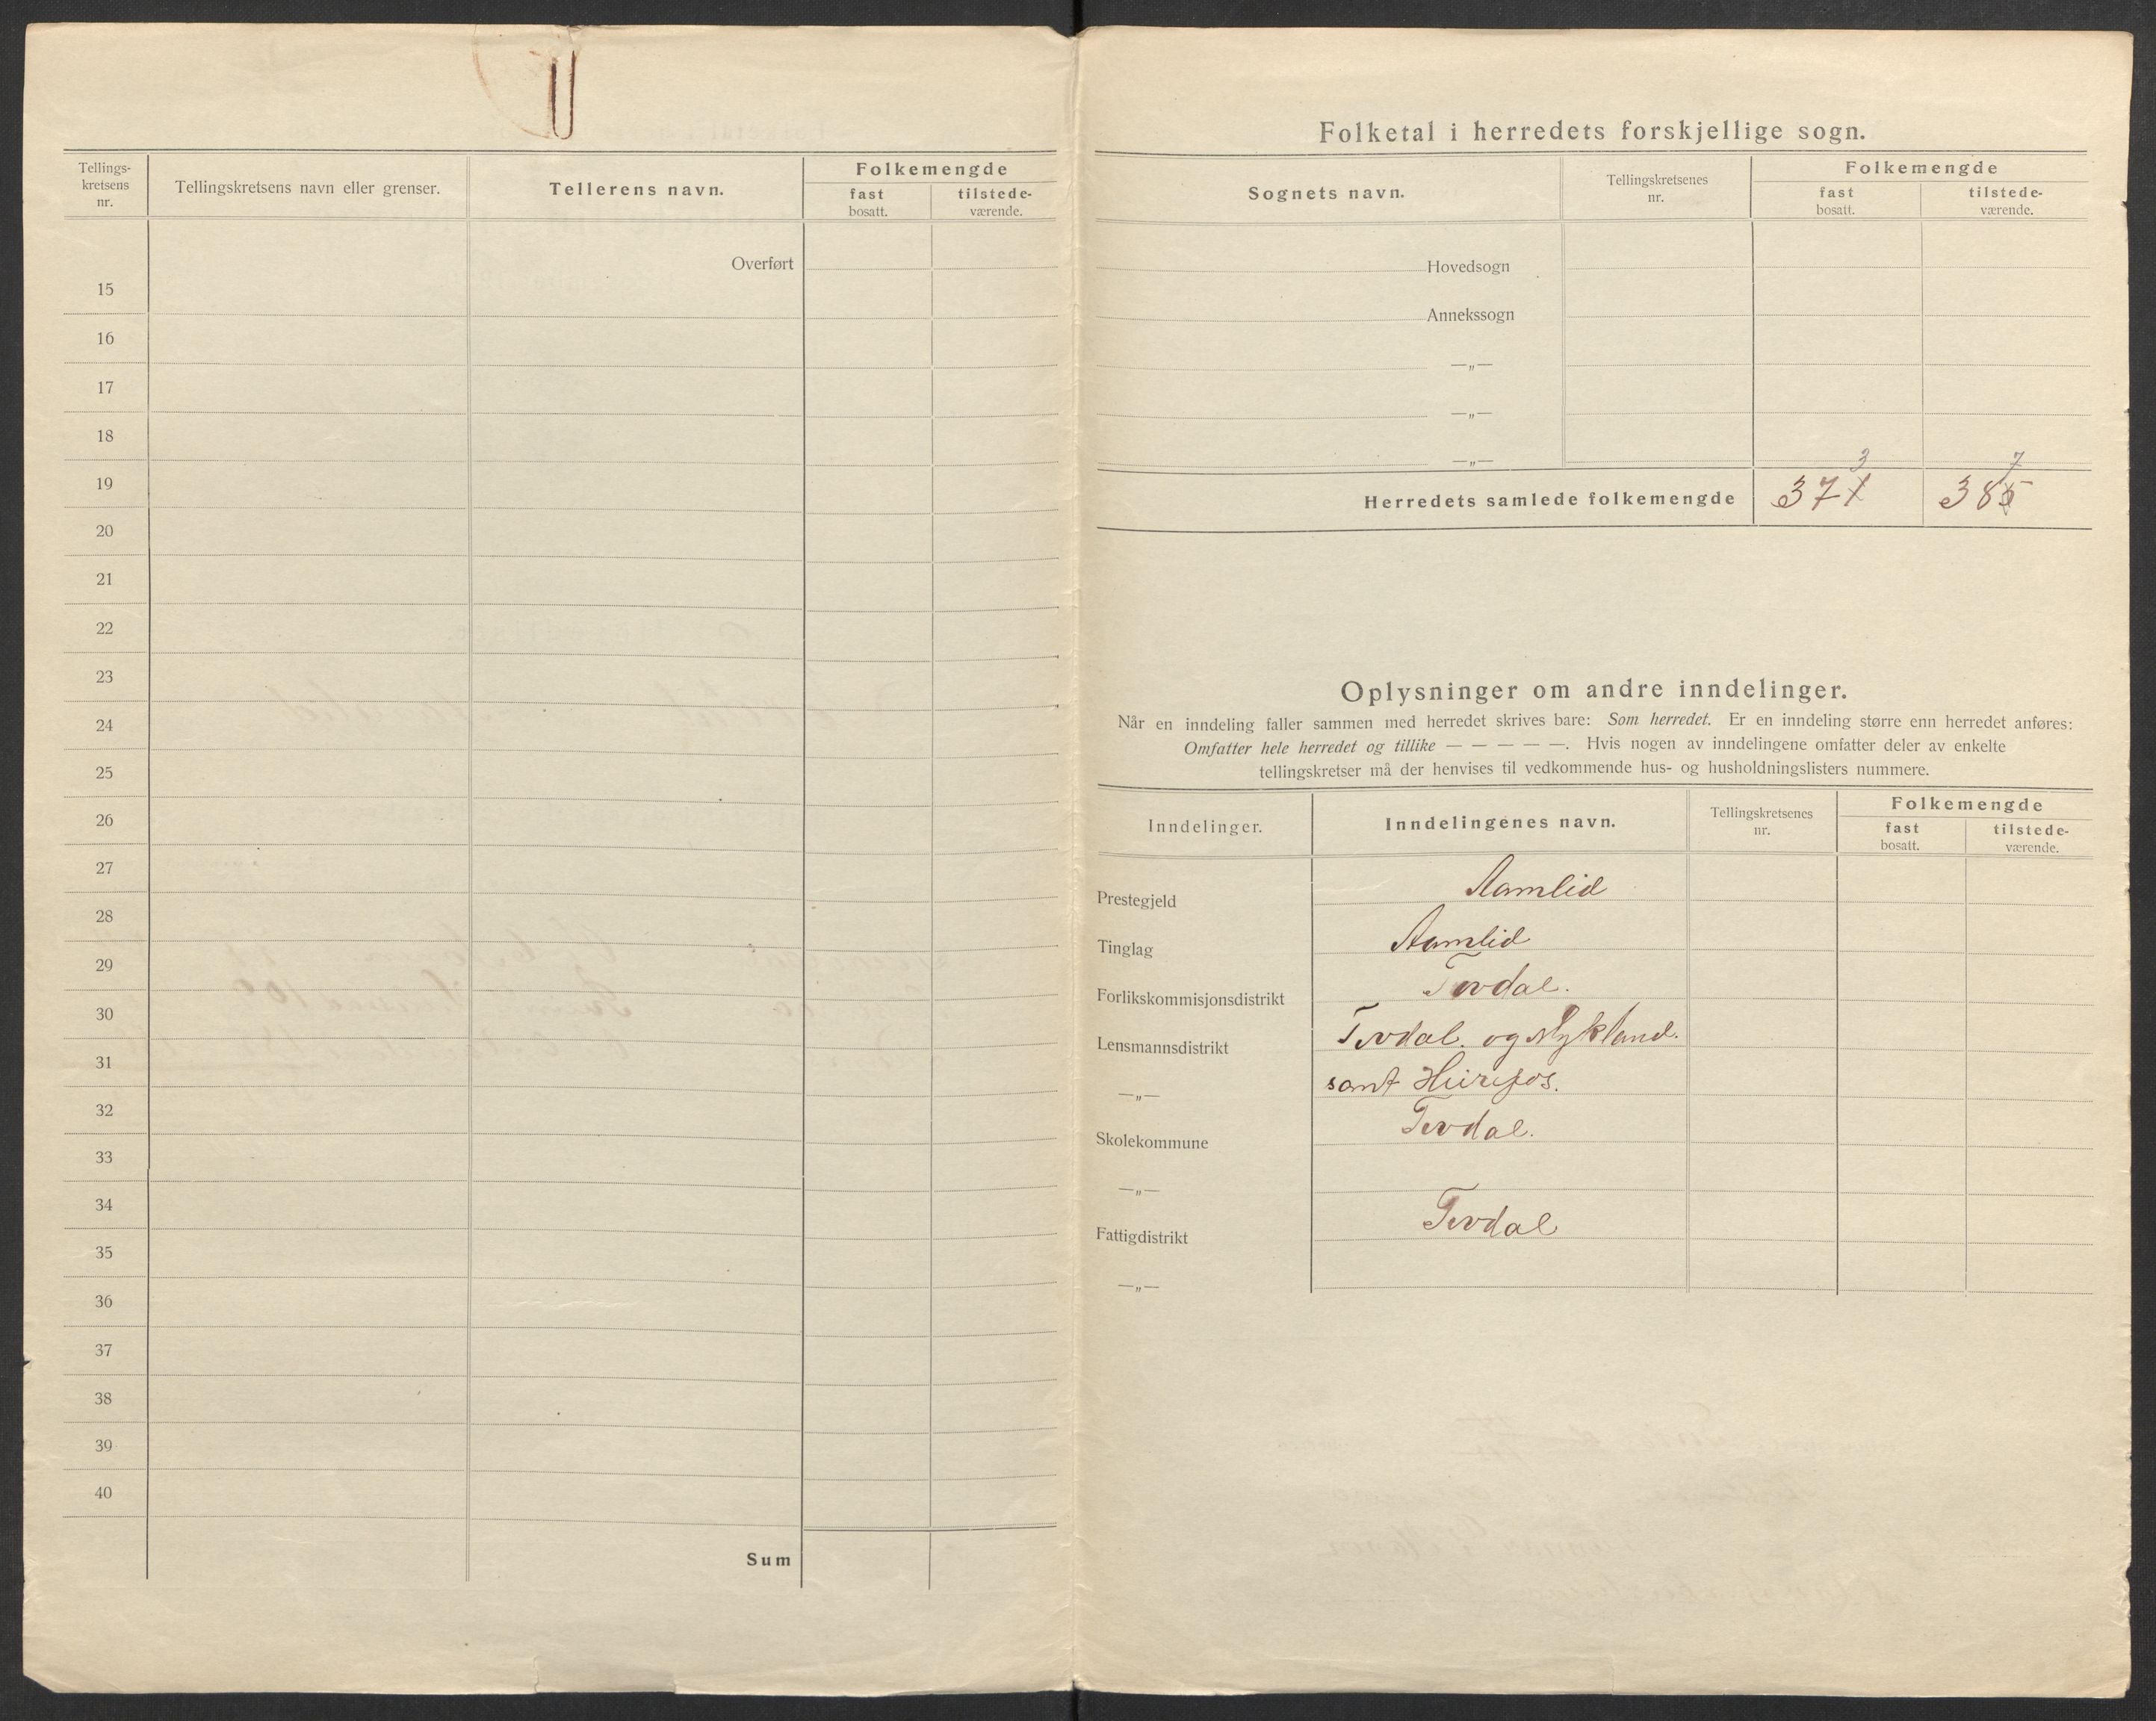 Tellings-
kretsens
nr.
Tellingskretsens navn eller grenser.
Tellerens navn.
Folkemengde
fast
bosatt.
tilstede-
værende.
Overført
15
16
17
18
19
20
21
22
23
24
25
26
27
28
29
30
31
32
33
34
35
36
37
38
39
40
Sum
Folketal i herredets forskjellige sogn.
Sognets navn.
Tellingskretsenes
nr.
Folkemengde
fast
bosatt.
tilstede-
værende.
Hovedsogn
Annekssogn
—„—
—„—
—„—
3 7
Herredets samlede folkemengde 371 385
Oplysninger om andre inndelinger.
Når en inndeling faller sammen med herredet skrives bare: Som herredet. Er en inndeling større enn herredet anføres:
Omfatter hele herredet og tillike — — — — —. Hvis nogen av inndelingene omfatter deler av enkelte
tellingskretser må der henvises til vedkommende hus- og husholdningslisters nummere.
Inndelinger.
Inndelingenes navn.
Tellingskretsenes
nr.
Folkemengde
fast
bosatt.
tilstede-
værende.
Prestegjeld Aamlid
Tinglag Aamlid
Forlikskommisjonsdistrikt Tovdal.
Lensmannsdistrikt Tovdal. og Mykland.
—„— samt Herefos.
Skolekommune Tovdal.
—„—
Fattigdistrikt Tovdal
—„—